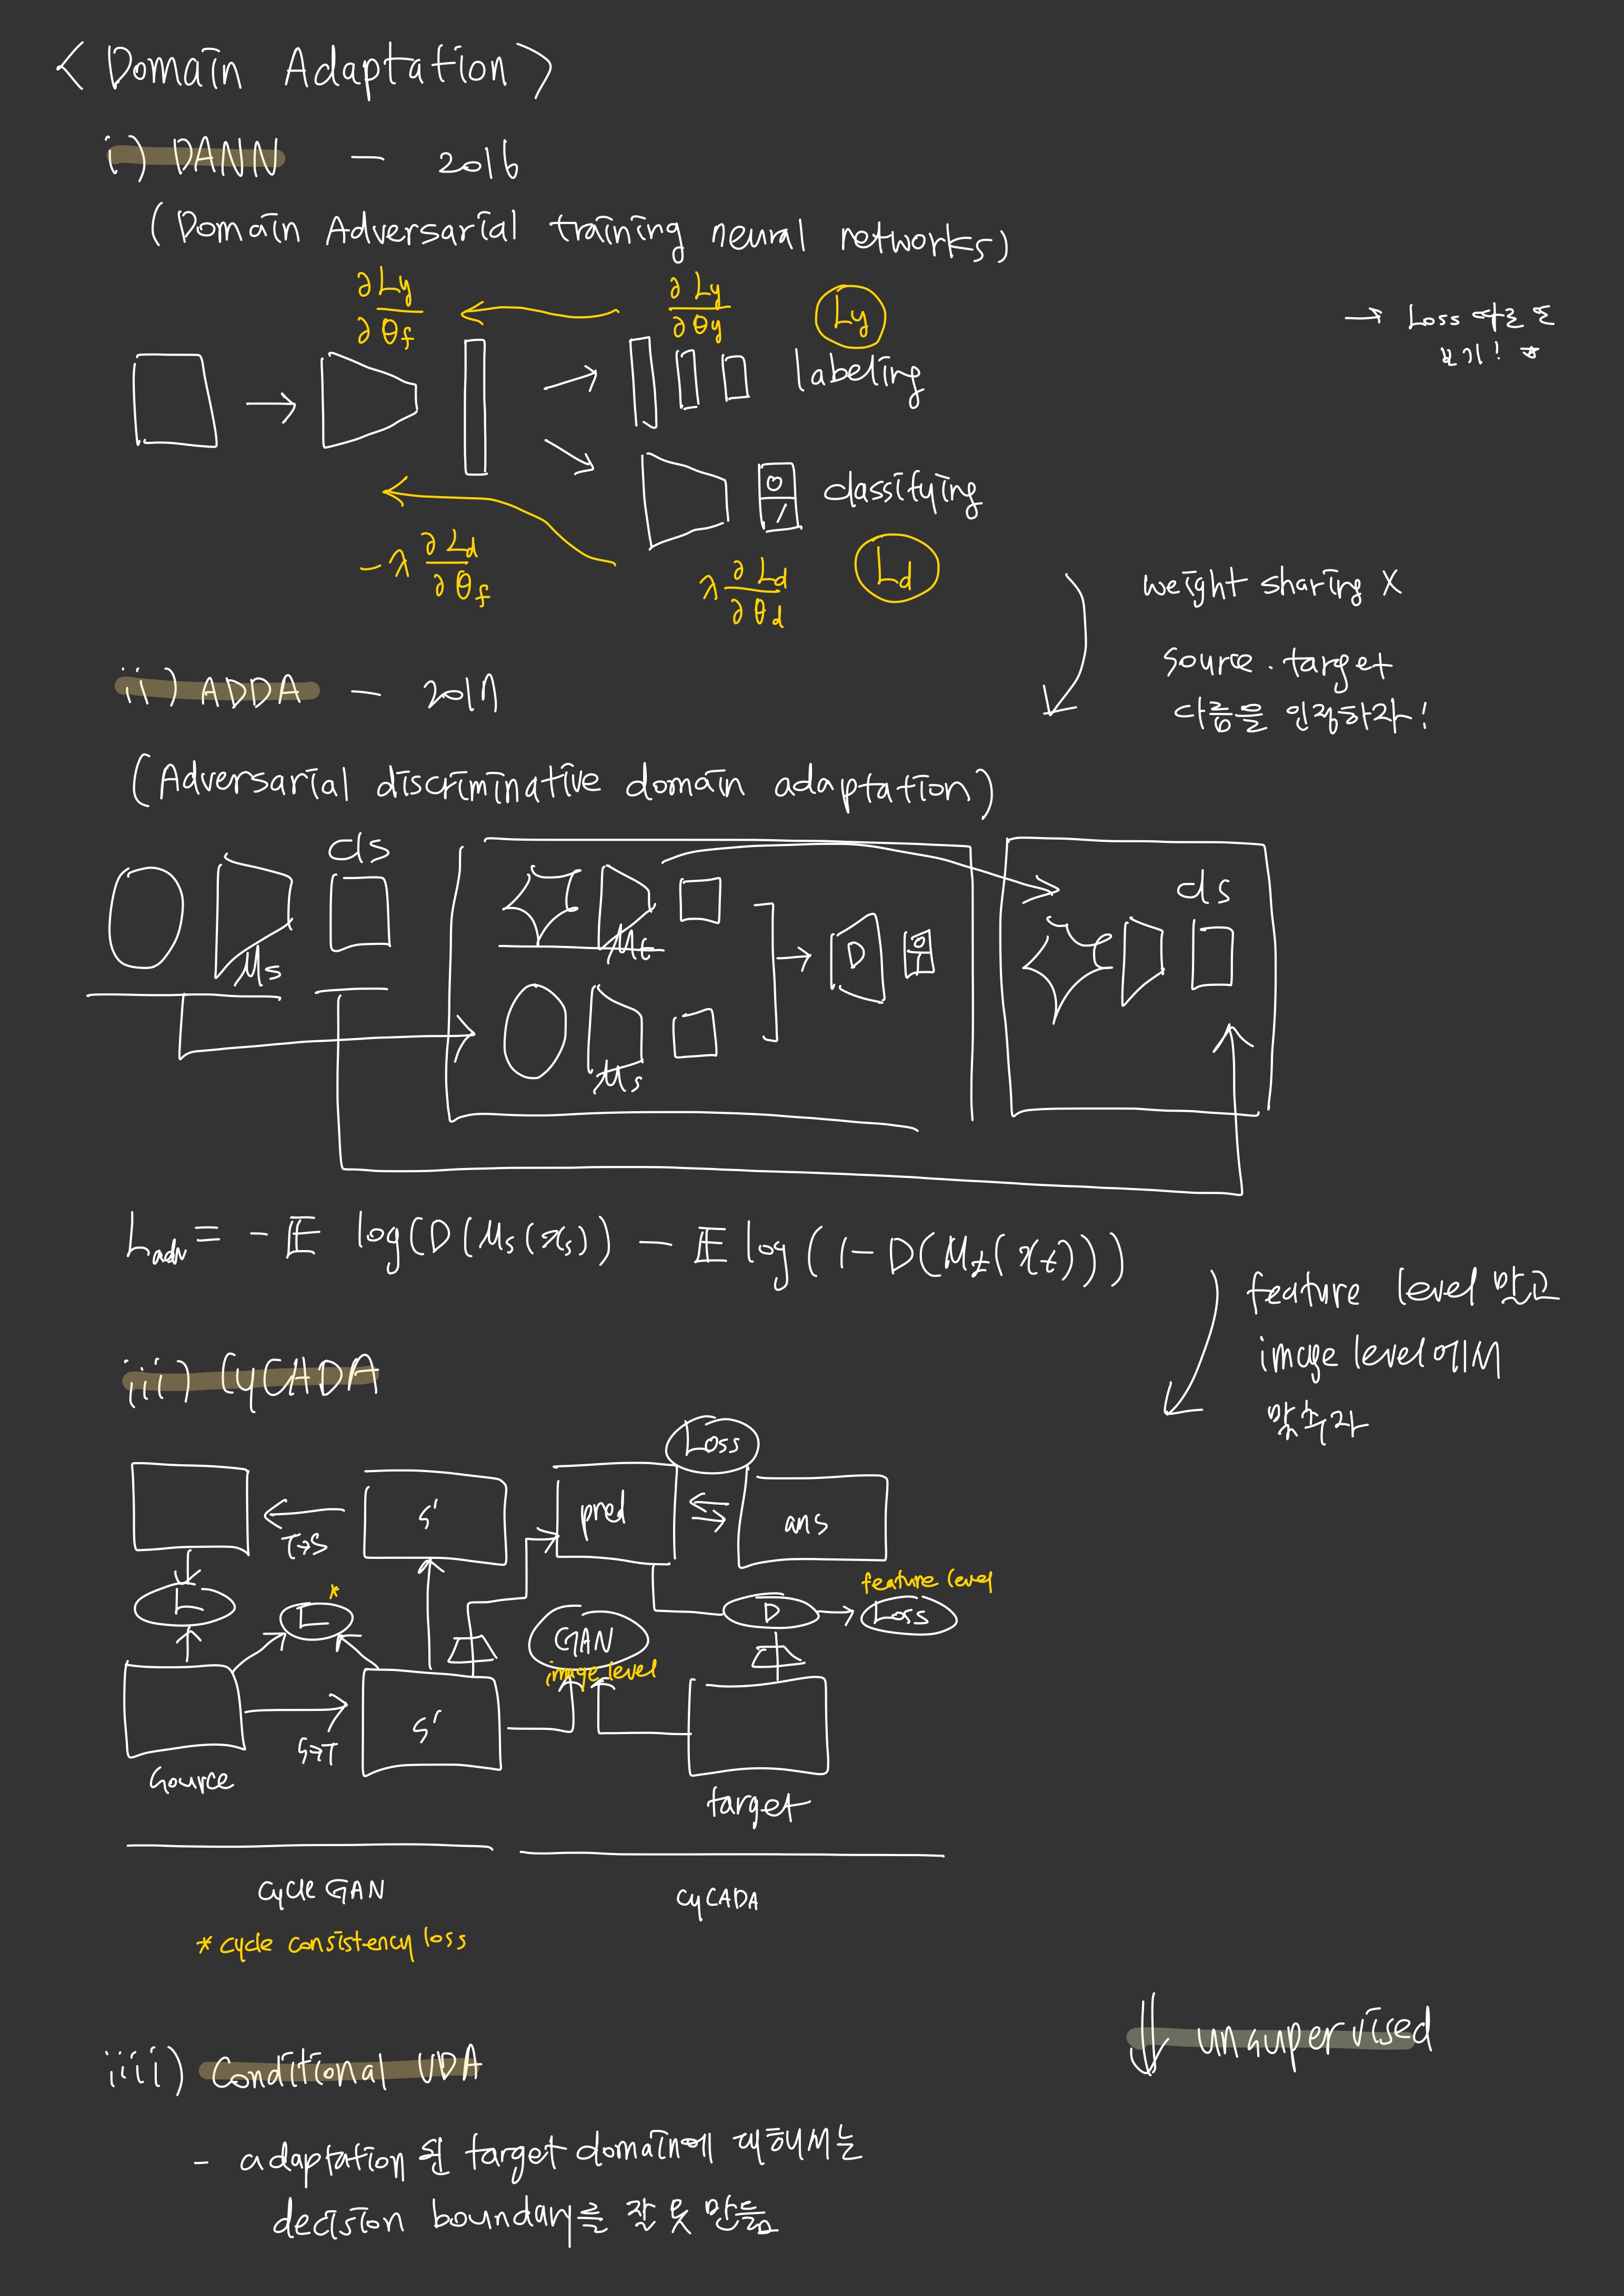 <Domain Adaptation>
i) DANN — 2016
(Domain Adversarial training neural networks)
∂Ly/∂θf
∂Ly/∂θy
Ly
labeling
→ Loss
보기! ☆
0
1
classifying
-λ ∂Ld/∂θf
λ ∂Ld/∂θd
Ld
weight sharing X
source. target
다름을 인정하라!
ii) ADDA — 2017
(Adversarial discriminative domain adaptation)
cls
Ms
Mt
D
0
1
Ms
cls
Ladv = - E log(D(Ms(xs)) - E log(1-D(Mt(xt)))
feature level 말고
image level에서
맞추자
iii) CyCADA
Loss
S'
pred
ans
T→S
L
L *
GAN
image level
D
feature level
Loss
S'
S→T
source
target
cycle GAN
cyCADA
* cycle consistency loss
unsupervised
iiii) Conditional UDA
- adaptation 된 target domain에 대해서는
decision boundary를 잘 못 만듦